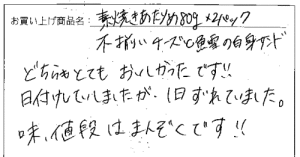 お買い上げ商品名: 素焼きあたりめ80g×2パック
不揃いチーズと魚雪の白身サンド
どちらもとても おいしかったです!!
日付けしていしましたが、1日ずれていました。
味、値段はまんぞくです!!